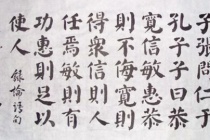 子張問仁于
孔子子曰恭
寬信敏惠恭
則不侮寬則
得衆信則人
任焉敏則有
功惠則足以
使人 錄論語句